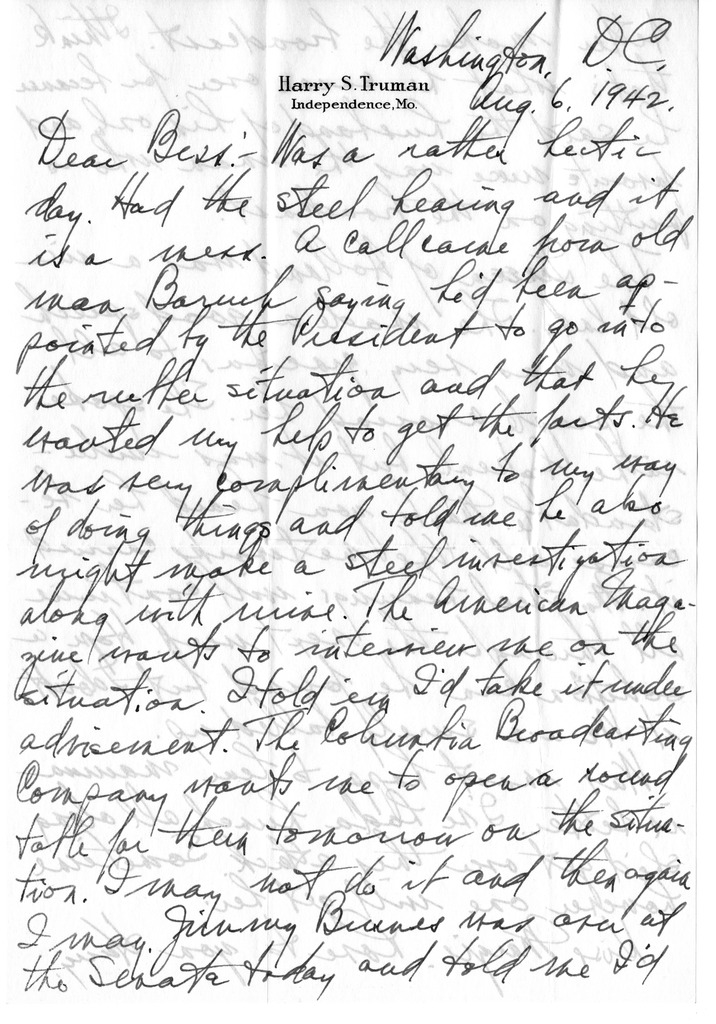 Washington, D.C.
Harry S. Truman
Independence, Mo.
Aug. 6, 1942.
Dear Bess:- Was a rather hectic
day. Had the steel hearing and it
is a mess. A call came from old
man Baruch saying he'd been ap-
pointed by the President to go into
the rubber situation and that he
wanted my help to get the facts. He
was very complimentary to my way
of doing things and told me he also
might make a steel investigation
along with mine. The American Maga-
zine wants to interview me on the
situation. I told 'em I'd take it under
advisement. The Columbia Broadcasting
Company wants me to open a round
table for them tomorrow on the situa-
tion. I may not do it and then again
I may. Jimmy Byrnes was over at
the Senate today and told me I'd